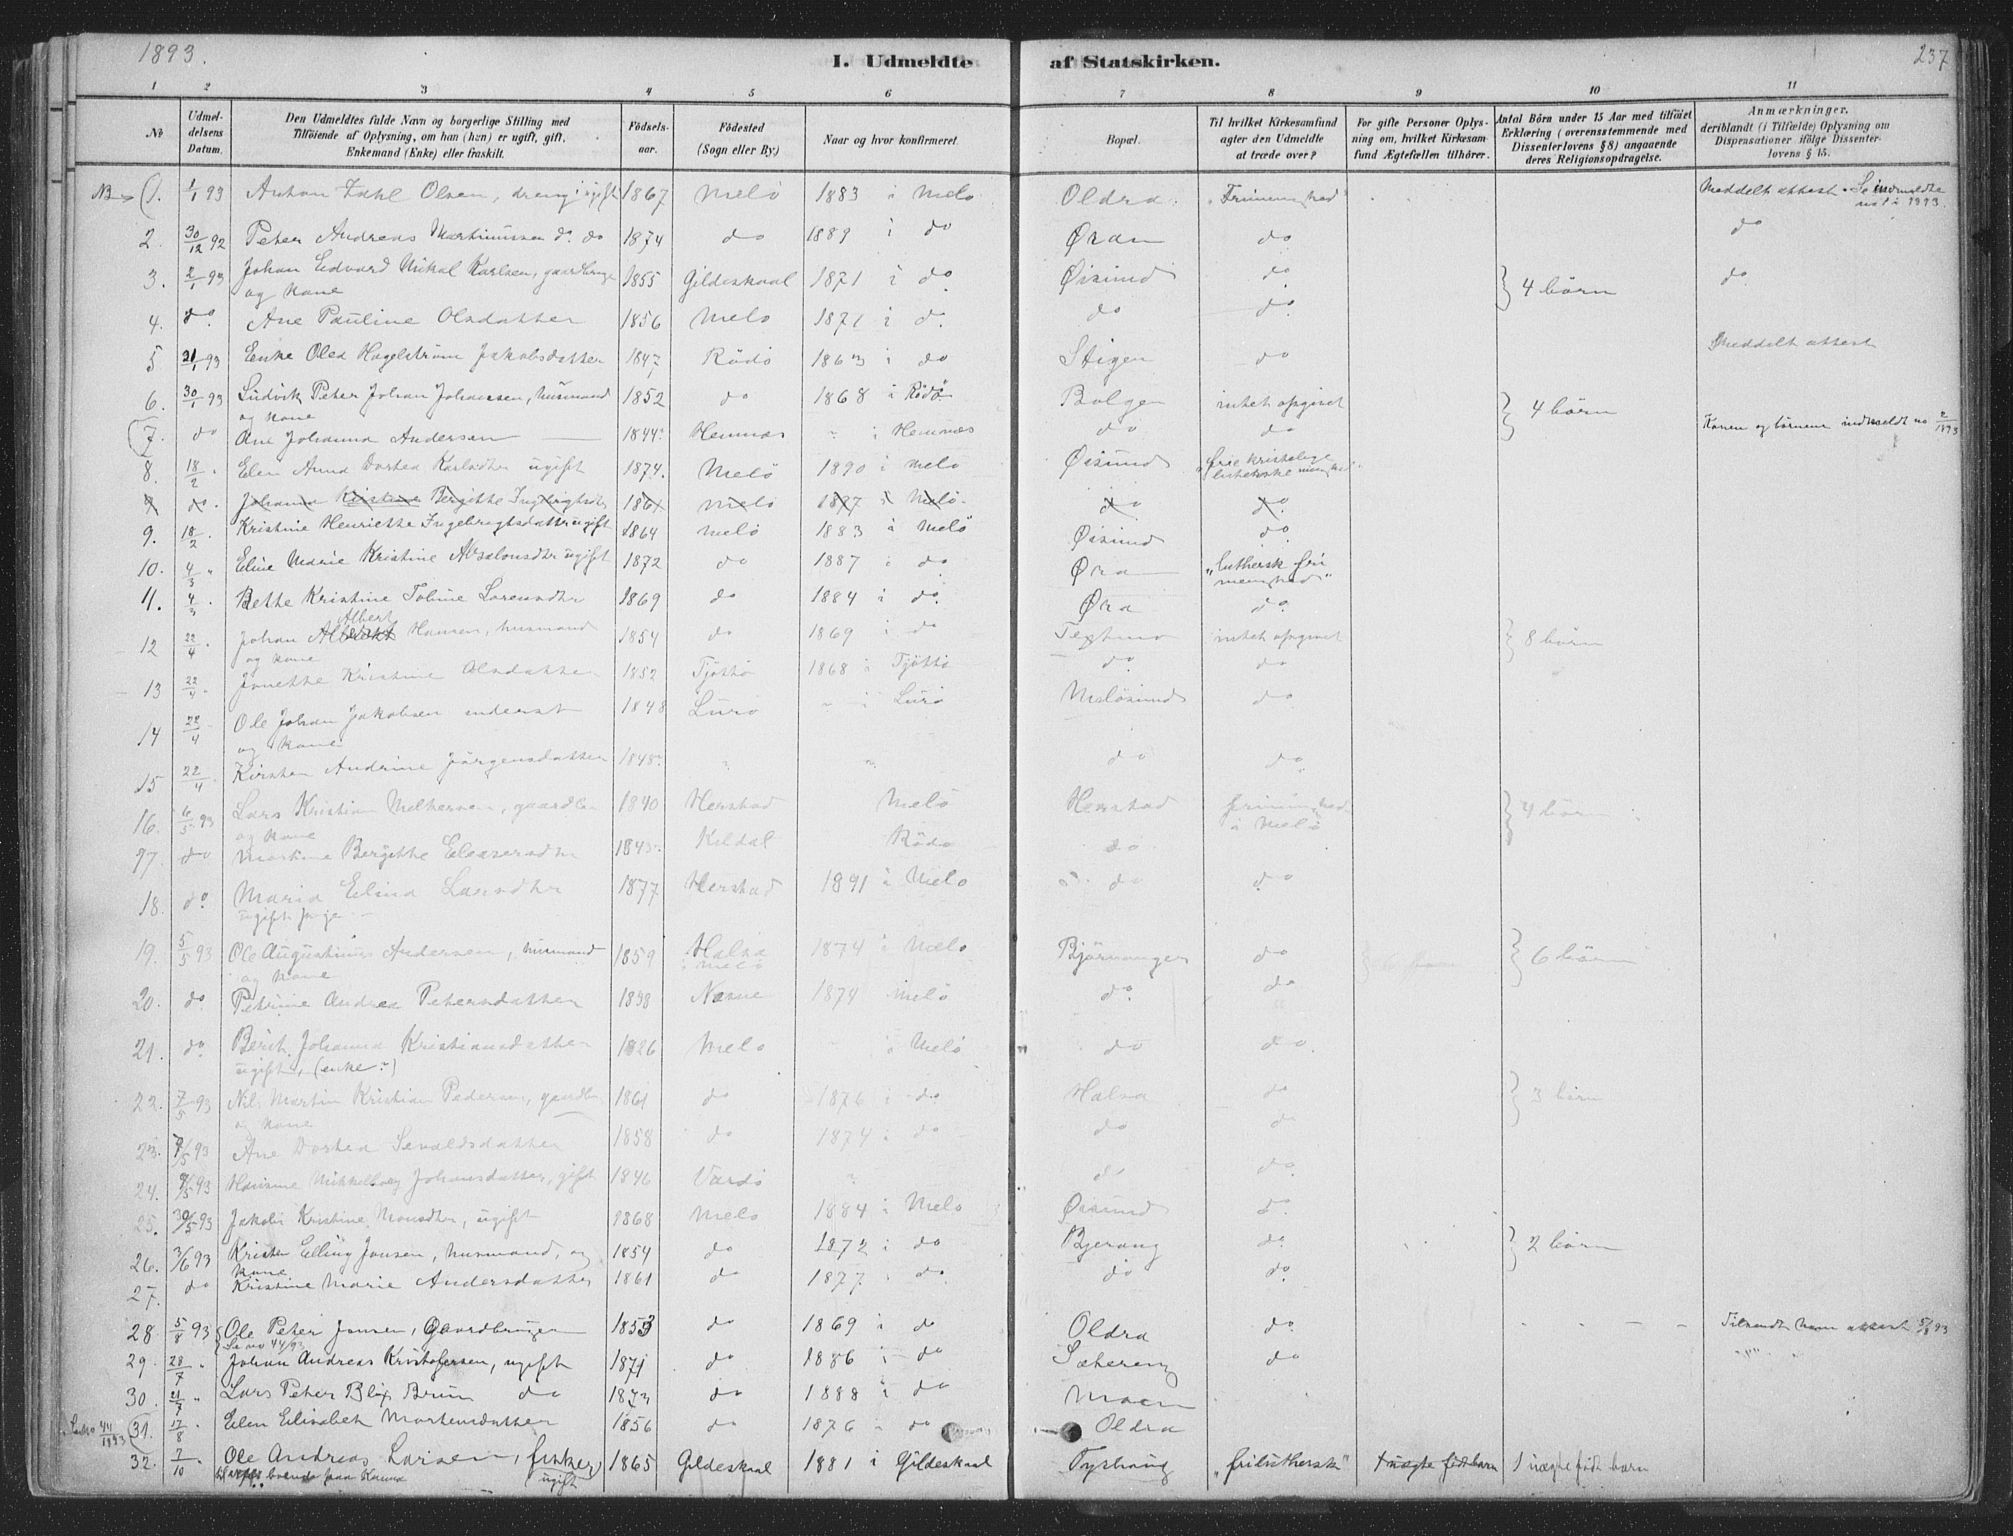 1893.
I. Udmeldte af Statskirken.
237
1 2 3 4 5 6 7 8 9 10 11
No
Udmeldelsens Datum.
Den Udmeldtes fulde Navn og borgerlige Stilling med
Tilføiende af Oplysning, om han (hun) er ugift, gift,
Enkemand (Enke) eller fraskilt.
Fødselsaar.
Fødested
(Sogn eller By.)
Naar og hvor konfirmeret
Bopæl.
Til hvilket Kirkesamfund
agter den Udmeldte
at træde over?
For gifte Personer Oplysning om, hvilket Kirkesamfund Ægtefællen tilhører.
Antal Børn under 15 Aar med tilføiet
Erklæring (overensstemmende med
Dissenterlovens § 8) angaaende
deres Religionsopdragelse.
Anmærkninger,
deriblandt (i Tilfælde) Oplysning om
Dispensationer ifølge Dissenterlovens § 15.
NB 1. 1/1 93 Anton Zahl Olsen, dreng ugift 1867 Melö 1883 i Melö Oldra. "Frimenighed" Meddelt attest. Se indmeldte no 1 i 1893.
2. 30/12 92 Peter Andreas Martinussen do. do 1874 do 1889 i do Øran do do
3. 2/1 93 Johan Edvard Mikal Karlsen, gaardbruger 1855 Gildeskaal 1871 i do. Øisund do. } 4 börn do.
og kone
4. do. Ane Pauline Olsdatter 1856 Melö 1871 i d. do do.
5 21/1 93 Enke Olea Hagelström Jakobsdatter 1847 Rödö 1863 i do Stigen do Meddelt attest
6. 30/1 93 Ludvik Peter Johan Johansen, husmand 1852 do 1868 i Rödö Bolgen intet opgivet } 4 börn
og kone
7. do Ane Johanna Andersen 1844 Hemnæs " i Hemnæs do do Konen og börnene indmeldt no 2/1893
8. 18/2 Elen Anna Dortea Karlsdtr ugift 1874. Melö 1890 i Melö Øisund "frie kristelige lutherske menighed"
9 do. Johanna Kristine Bergitte Ingebrigtsdtr 1861 Melö 1877 i Melö. do do.
9. 18/2 Kristine Henriette Ingebrigtsdatter ugift 1864 Melö 1883 i Melö Øisund do.
10. 4/3 " Eline Marie Kristine Absalonsdtr ugift 1872 do 1887 i do Øra "luthersk frimenighed"
11. 4/3 Bette Kristine Toline Larensdtr 1869 do 1884 i do. Øra do.
Albert
12 22/4 Johan Hansen, husmand 1854 do 1869 i do intet opgivet } 8 börn
og kone
13 22/4 Jonette Kristine Olsdatter 1852 Tjöttö 1868 i Tjöttö do. do
14 22/4 Ole Johan Jakobsen inderst 1848 Lurö " i Lurö Melösund do
og kone
15 22/4 Kirsten Andrine Jörgensdatter 1848 " " do do
16. 6/5 93 Lars Kristian Melkersen, gaardbr 1840 Herstad Melö Herstad frimenighed i Melö } 4 börn
og kone
17. do Bergitte Eleasersdtr 1843 Kildal Rödö do
18. do. Maria Elina Larsdtr 1877 Herstad 1891 i Melö do do
ugift pige
19. 5/5 93 Ole Augustinus Andersen, husmand 1859 Halsa i Melö 1874 i Melö Bjärangen do } 6 börn
og kone
20. do Petrine Andrea Petersdatter 1858 Nesne 1874 Melö do. do
21. do. Berit Johanna Kristiansdatter 1826 Melö i Melö do do
ugift, (enke?)
22. 7/5 93 Nils Martin Kristian Pedersen, gaardbr 1861 do 1876 i do Halsa do } 3 börn
og kone
23. 7/5 93 Ane Dortea Sevaldsdatter 1858 do 1874 i do do do
24. 9/5 93 Johansdatter, gift 1846 Vardö " do do.
25. 30/5 93 Jakobi Kristine Monsdtr, ugift 1868 Melö 1884 i Melö Øisund do.
26. 3/6 93 Elling Jonsen, husmand, og 1854 do 1872 i do Bjerang do } 2 börn
kone
27. do Kristine Marie Andersdatter 1861 do 1877 do. do do.
28 5/8 93 Ole Peter Jonsen, Gaardbruger 1853 do 1869 i do Oldra do. Tilsendt ham attest 5/8 93
Se no 44/93
29. 28/7 " Johan Andreas Kristofersen, ugift 1871 do 1886 i do do "
30. 21/7 " Lars Peter Blix Bruun do 1873 do 1888 i do
Se no 44/1893 31. 17/8 Elen Elisabet Mortensdatter 1856 do 1876 do Oldra
32. 7/10 Ole Andreas Larsen, fisker, 1865 Gildeskaal 1881 i Gildeskaal "frilutherske" 1 uægte födt barn 1 uægte födt barn
ugift